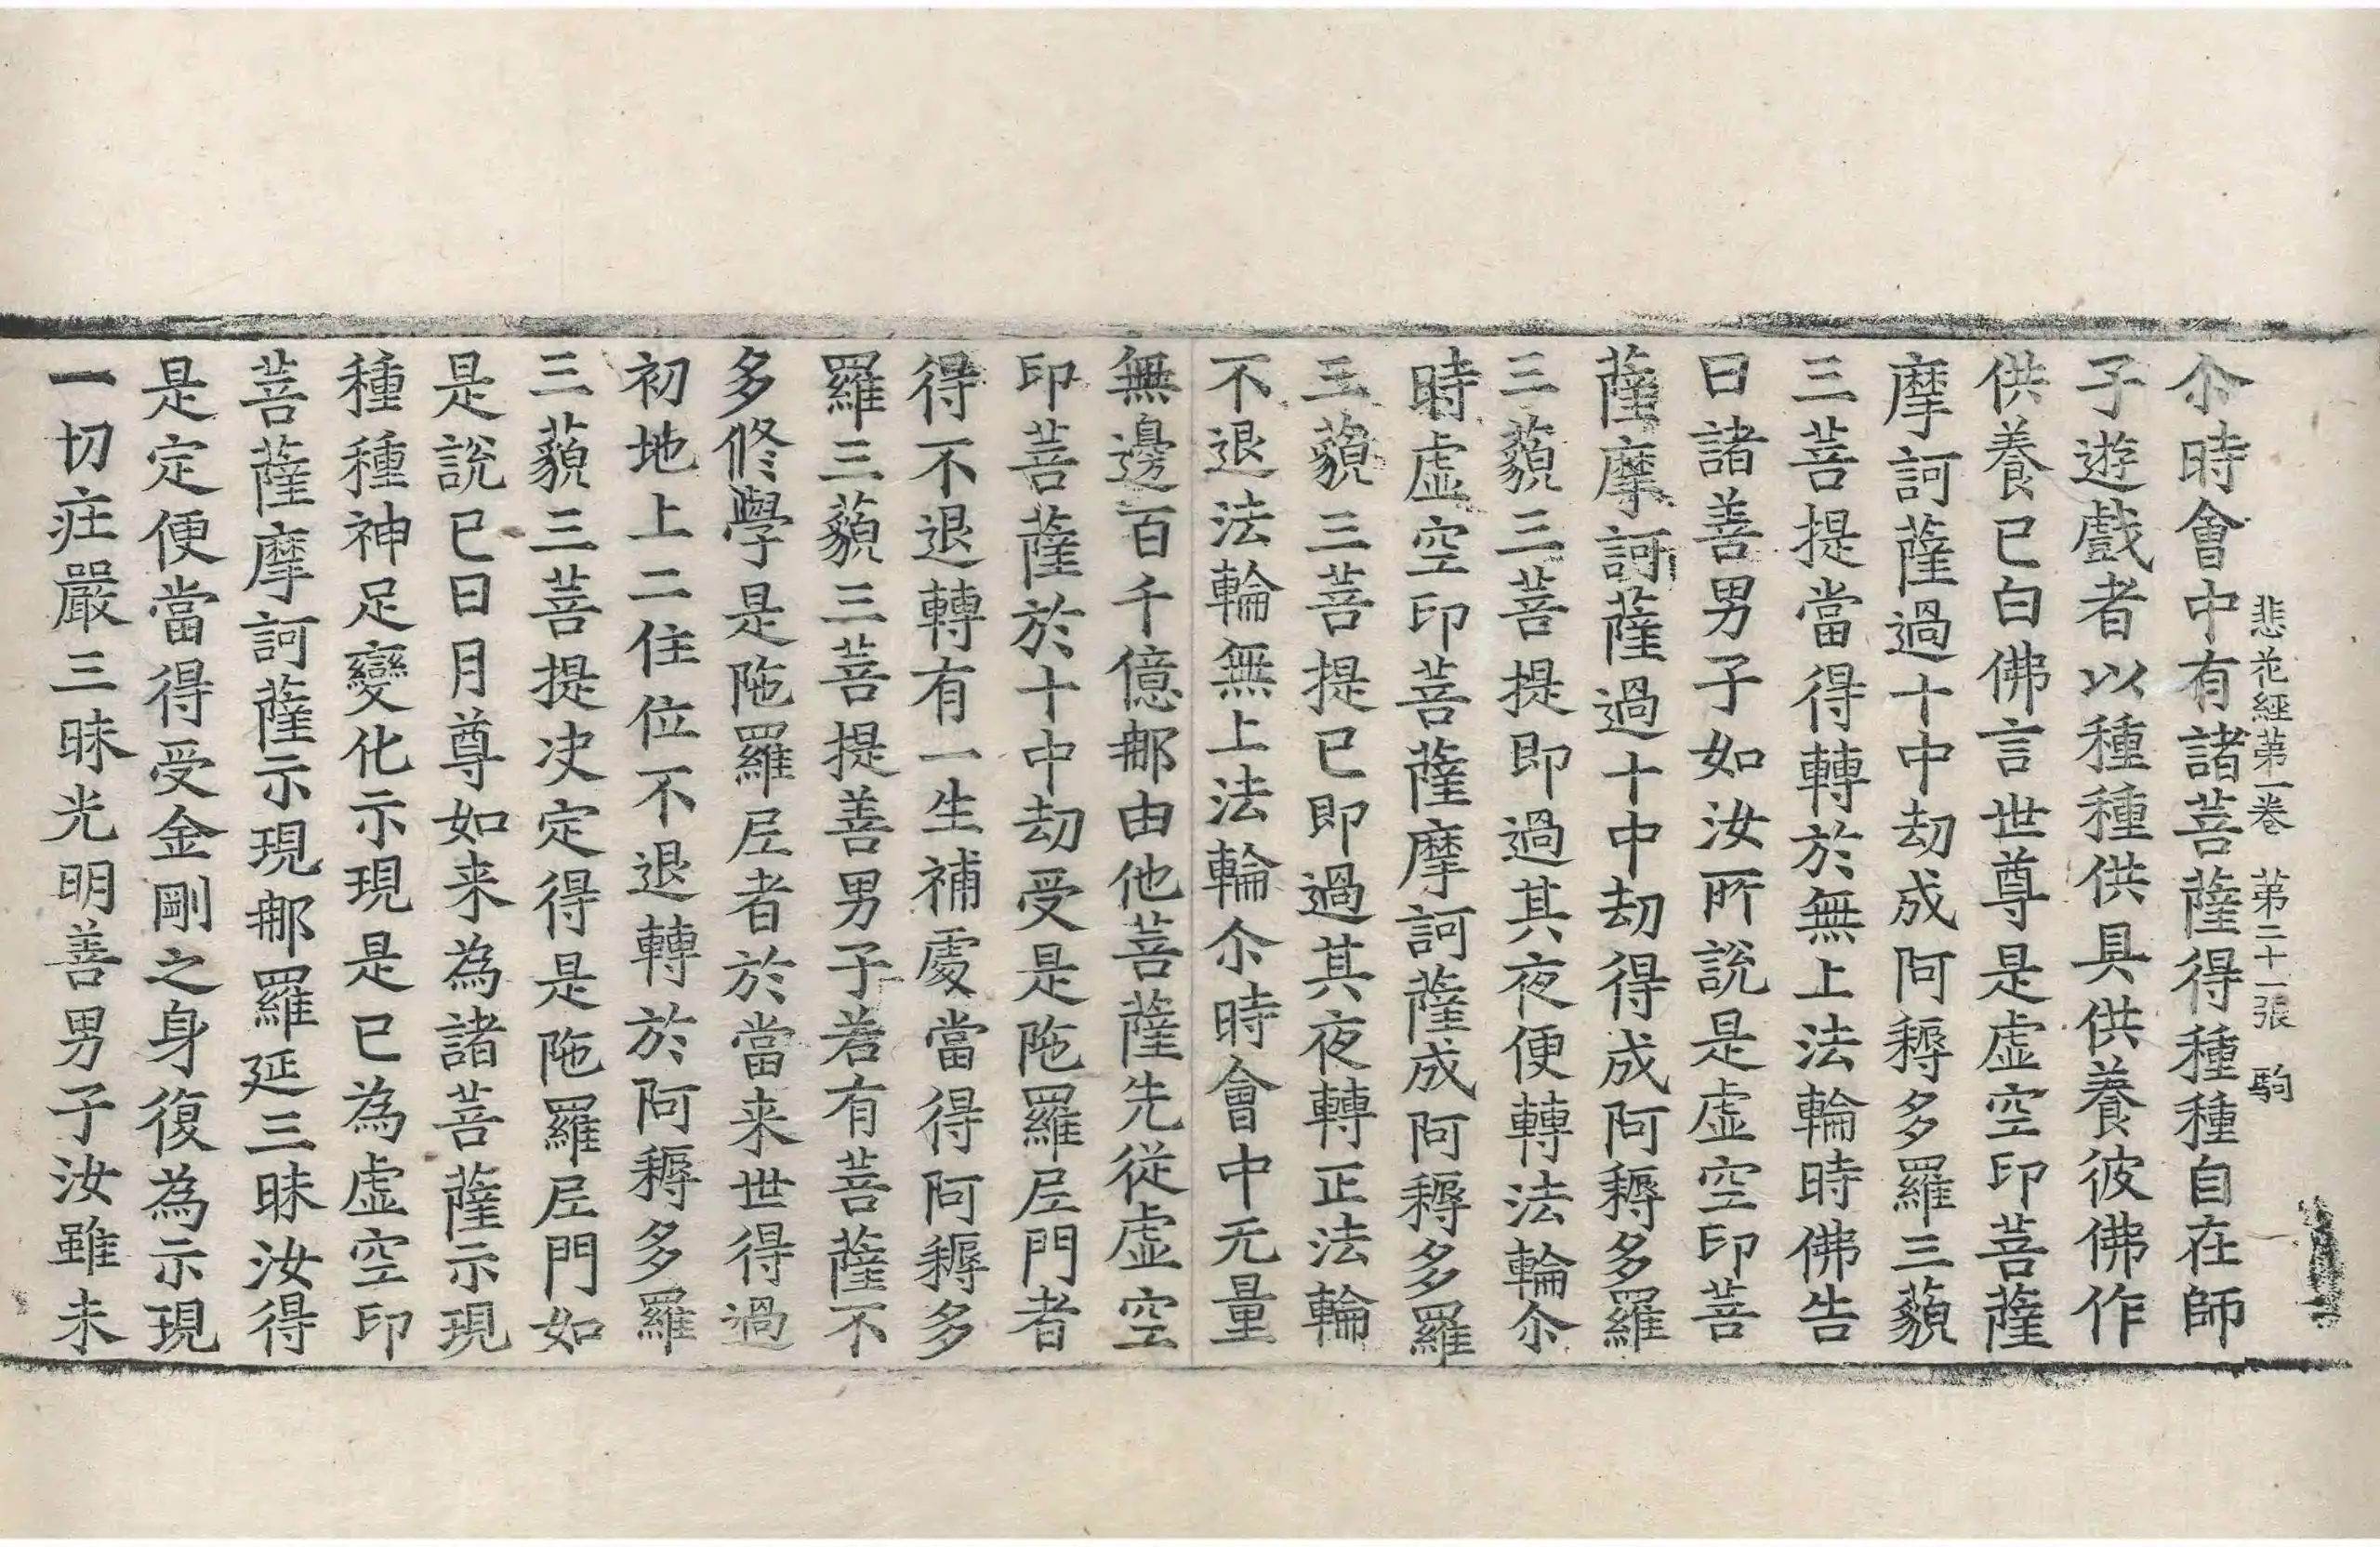 悲花經第一卷 第二十一張 駒
尒時會中有諸菩薩得種種自在師
子遊戲者以種種供具供養彼佛作
供養已白佛言世尊是虛空印菩薩
摩訶薩過十中劫成阿耨多羅三藐
三菩提當得轉於無上法輪時佛告
曰諸善男子如汝所說是虛空印菩
薩摩訶薩過十中劫得成阿耨多羅
三藐三菩提即過其夜便轉法輪尒
時虛空印菩薩摩訶薩成阿耨多羅
三藐三菩提已即過其夜轉正法輪
不退法輪無上法輪尒時會中无量
無邊百千億那由他菩薩先從虛空
印菩薩於十中劫受是陁羅尼門者
得不退轉有一生補處當得阿耨多
羅三藐三菩提善男子若有菩薩不
多修學是陁羅尼者於當来世得過
初地上二住位不退轉於阿耨多羅
三藐三菩提决定得是陁羅尼門如
是說已日月尊如来為諸菩薩示現
種種神足變化示現是已為虛空印
菩薩摩訶薩示現那羅延三昧汝得
是定便當得受金剛之身復為示現
一切莊嚴三昧光明善男子汝雖未